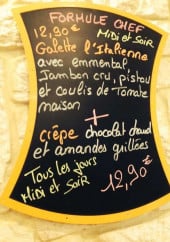 FORMULE CHEF
12,90€ MIDI et SOIR
Galette l'Italienne
avec emmental
Jambon cru, pistou
et coulis de Tomate
maison
+
crêpe chocolat chaud
et amandes grillées
Tous les jours
MIDI et SOIR 12,90€